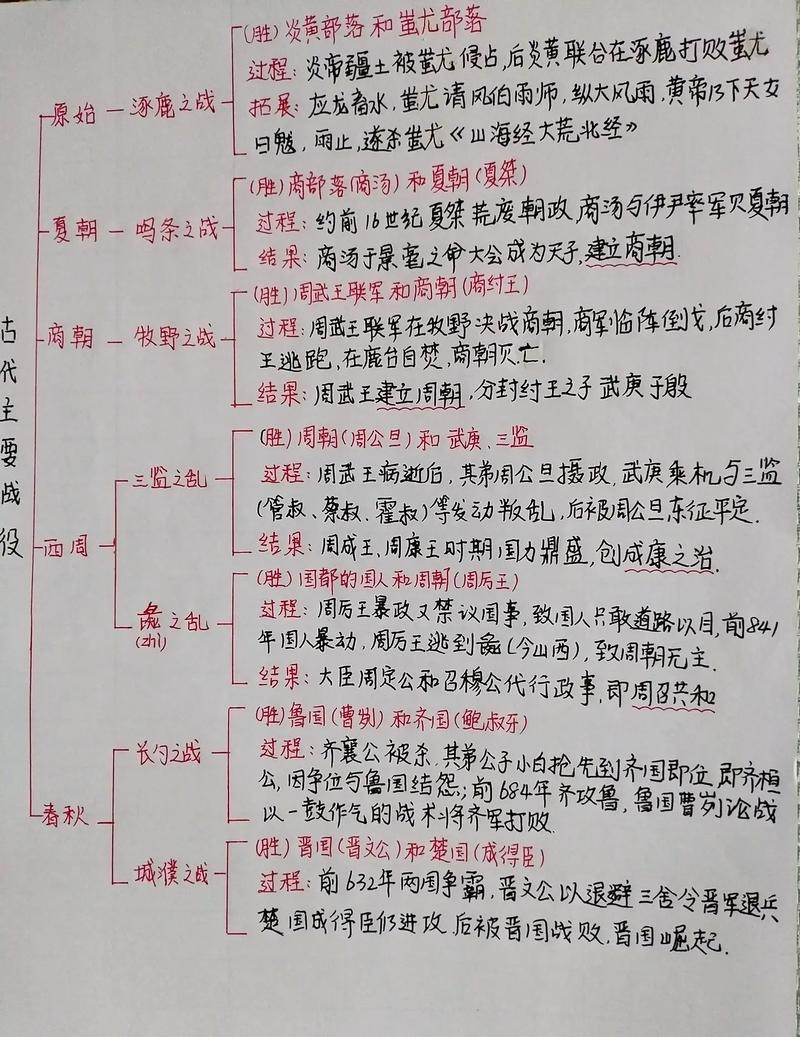 古代主要战役
原始
涿鹿之战
(胜)炎黄部落和蚩尤部落
过程：炎帝疆土被蚩尤侵占,后炎黄联合在涿鹿打败蚩尤
拓展：应龙畜水，蚩尤请风伯雨师，纵大风雨，黄帝乃下天女
曰魃，雨止,遂杀蚩尤《山海经大荒北经》
夏朝
鸣条之战
(胜)商部落(商汤)和夏朝(夏桀)
过程：约前16世纪夏桀荒废朝政,商汤与伊尹率军灭夏朝
结果：商汤于景亳之命大会成为天子,建立商朝.
商朝
牧野之战
(胜)周武王联军和商朝(商纣王)
过程:周武王联军在牧野决战商朝,商军临阵倒戈,后商纣
王逃跑,在鹿台自焚,商朝灭亡.
结果：周武王建立周朝,分封纣王之子武庚于殷
西周
三监之乱
(胜)周朝(周公旦)和武庚、三监
过程：周武王病逝后，其弟周公旦摄政，武庚乘机与三监
(管叔、蔡叔、霍叔)等发动叛乱,后被周公旦东征平定.
结果：周成王、周康王时期国力鼎盛,创成康之治.
彘之乱
(zhì)
(胜)国都的国人和周朝(周厉王)
过程：周厉王暴政又禁议国事，致国人只敢道路以目,前841
年国人暴动，周厉王逃到彘(今山西)，致周朝无主.
结果：大臣周定公和召穆公代行政事,即周召共和
春秋
长勺之战
(胜)鲁国(曹刿)和齐国(鲍叔牙)
过程：齐襄公被杀,其弟公子小白抢先到齐国即位,即齐桓
公,因争位与鲁国结怨;前684年齐攻鲁,鲁国曹刿论战
以一鼓作气的战术将齐军打败.
城濮之战
(胜)晋国(晋文公)和楚国(成得臣)
过程：前632年两国争霸,晋文公以退避三舍令晋军退兵
楚国成得臣仍进攻,后被晋国战败,晋国崛起.